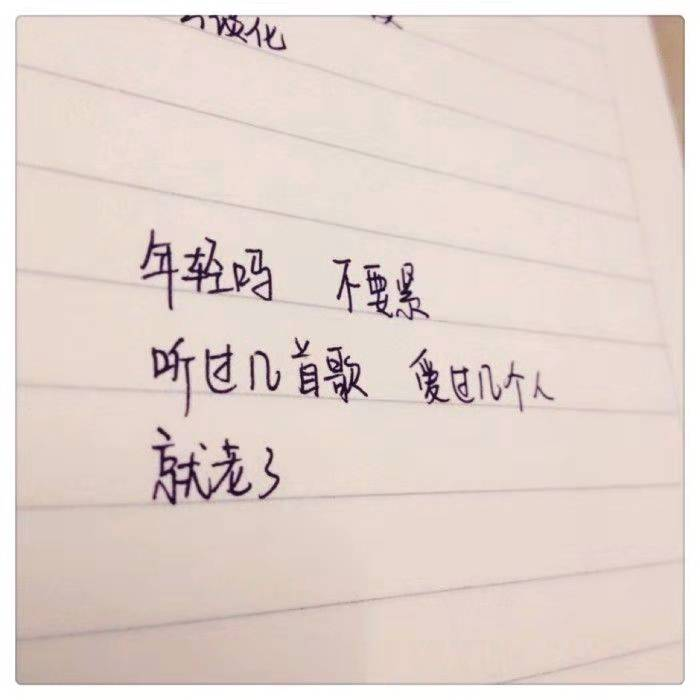 淡化
年轻吗 不要紧
听过几首歌 爱过几个人
就老了